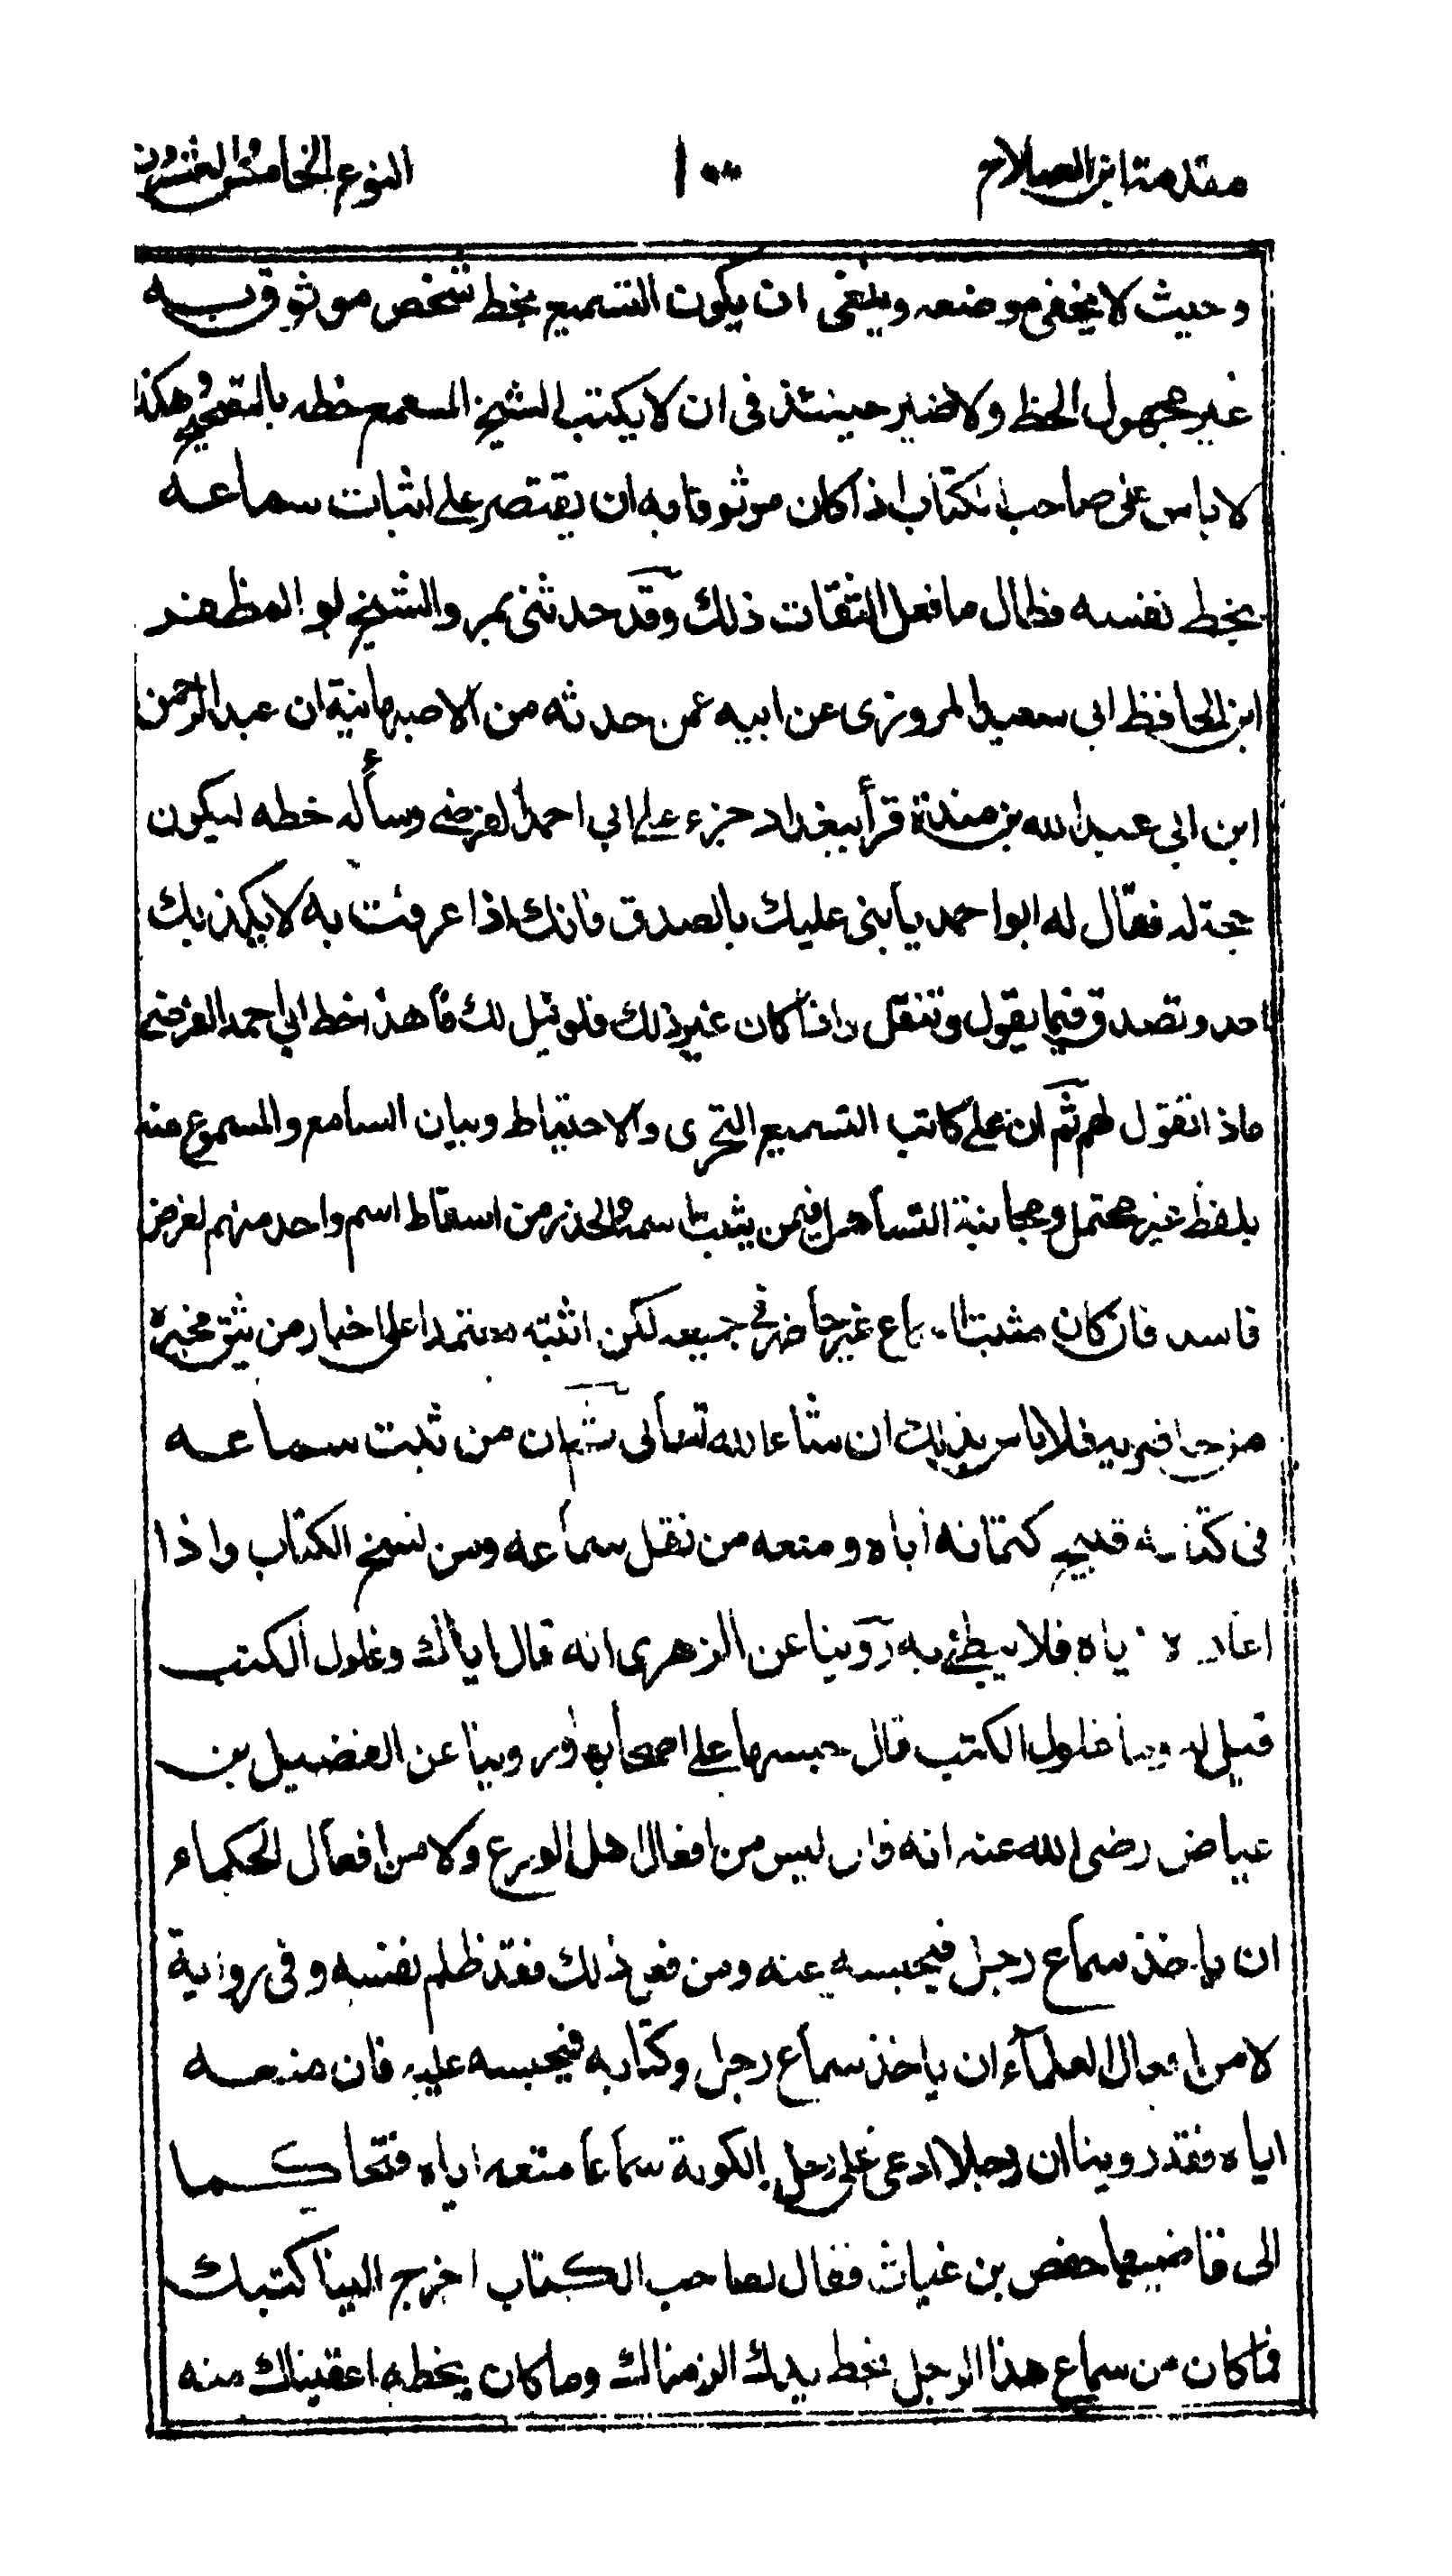 مقدمة ابن الصلاح ١٠٠ النوع الخامس والعشرون
وحيث لا يخفى موضعه وينبغى ان يكون التسميع بخط شخص موثوق به
غير مجهول الخط ولا ضير حينئذ فى ان لا يكتب الشيخ المسمع خطه بالتصحيح وهكذا
لا باس على صاحب الكتاب اذا كان موثوقا به ان يقتصر على اثبات سماعه
بخط نفسه فطال ما فعل الثقات ذلك وقد حدثنى بمرو الشيخ ابو المظفر
ابن الحافظ ابى سعيد المروزى عن ابيه عمن حدثه من الاصبهانية ان عبد الرحمن
ابن ابى عبد الله بن مندة قرأ ببغداد جزء على ابى احمد الفرضى وسأله خطه ليكون
حجة له فقال له ابو احمد يا بنى عليك بالصدق فانك اذا عرفت به لا يكذبك
احد وتصدق فيما يقول وتنقل واذا كان غير ذلك فلو قيل لك ما هذا خط ابى احمد الفرضى
ماذا تقول لهم ثم ان على كاتب التسميع التحرى والاحتياط وبيان السامع والمسموع منه
بلفظ غير محتمل ومجانبة التساهل فيمن يثبت اسمه والحذر من اسقاط اسم واحد منهم لغرض
فاسد فان كان مثبت السماع غير حاضر فى جميعه لكن اثبته معتمدا على اخبار من يثق بخبره
من حاضريه فلا باس بذلك ان شاء الله تعالى ثم ان من ثبت سماعه
فى كتابه قبيح كتمانه اياه ومنعه من نقل سماعه ومن نسخ الكتاب واذا
اعاره اياه فلا يبطئ به روينا عن الزهرى انه قال اياك وغلول الكتب
قيل له وما غلول الكتب قال حبسها على اصحابها وروينا عن الفضيل بن
عياض رضى الله عنه انه قال ليس من افعال اهل الورع ولا من افعال الحكماء
ان ياخذ سماع رجل فيحبسه عنه ومن فعل ذلك فقد ظلم نفسه وفى رواية
لا من افعال العلماء ان ياخذ سماع رجل وكتابه فيحبسه عليه فان منعه
اياه فقد روينا ان رجلا ادعى على رجل بالكوفة سماعا منعه اياه فتحاكما
الى قاضيها حفص بن غياث فقال لصاحب الكتاب اخرج الينا كتبك
فما كان من سماع هذا الرجل بخط يدك الزمناك وما كان بخطه اعفيناك منه